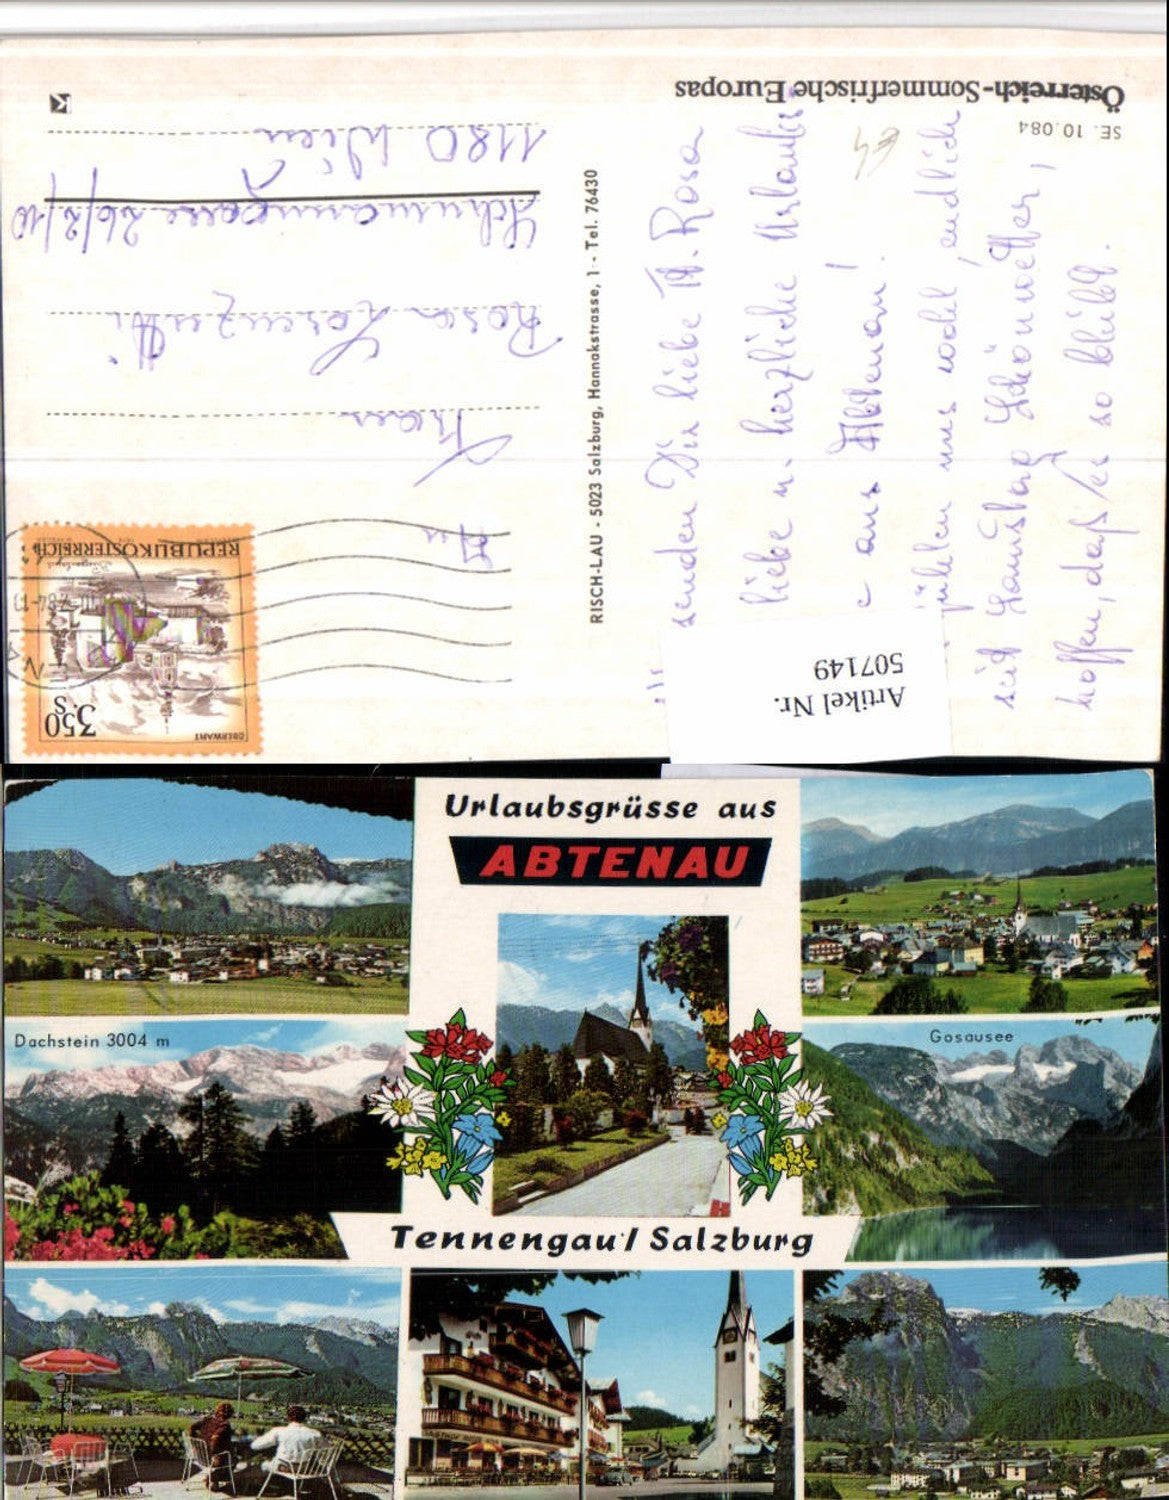 Österreich-Sommerfrische Europas
SE. 10.084
senden Dir liebe Tt. Rosa
liebe u. herzliche Urlaubs-
aus Abtenau!
fühlen uns wohl, endlich
seit Samstag Schönwetter,
hoffen, daß es so bleibt.
Artikel Nr.
507149
RISCH-LAU - 5023 Salzburg, Hannakstrasse, 1 - Tel. 76430
An
Frau
Rosa Lorenzutti
Schumanngasse 26/2/10
1180 Wien
REPUBLIK ÖSTERREICH
S 3.50
OBERWART
Urlaubsgrüsse aus
ABTENAU
Dachstein 3004 m
Gosausee
Tennengau/Salzburg